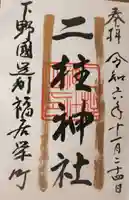 奉拝 令和六年十二月二十四日
二柱神社
下野國 福居栄町